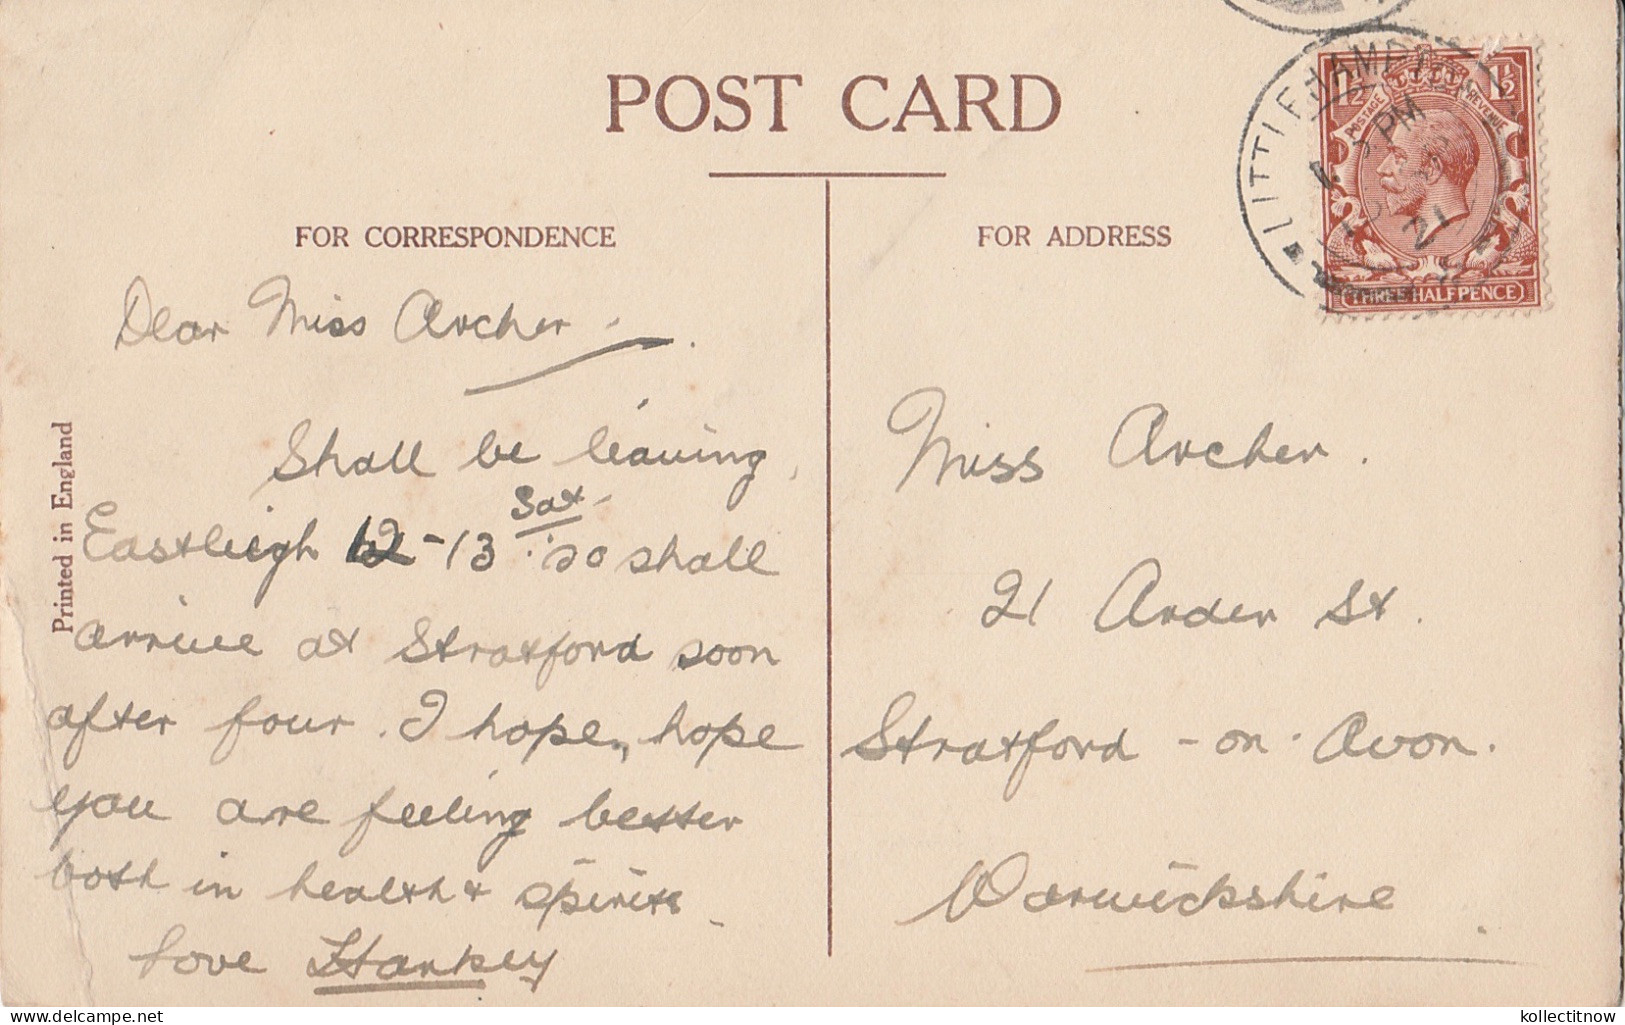 POST CARD
FOR CORRESPONDENCE
Dear Miss Archer.
Shall be leaving
Sat
Eastleigh 12-13 so shall
arrive at Stratford soon
after four. I hope, hope
you are feeling better
both in health & spirits
Love Hankey
Printed in England
FOR ADDRESS
Miss Archer.
21 Arden St.
Stratford-on-Avon.
Warwickshire
LITTLEHAMPTON
PM
21
1½ 1½
POSTAGE REVENUE
THREE HALFPENCE
kollectitnow